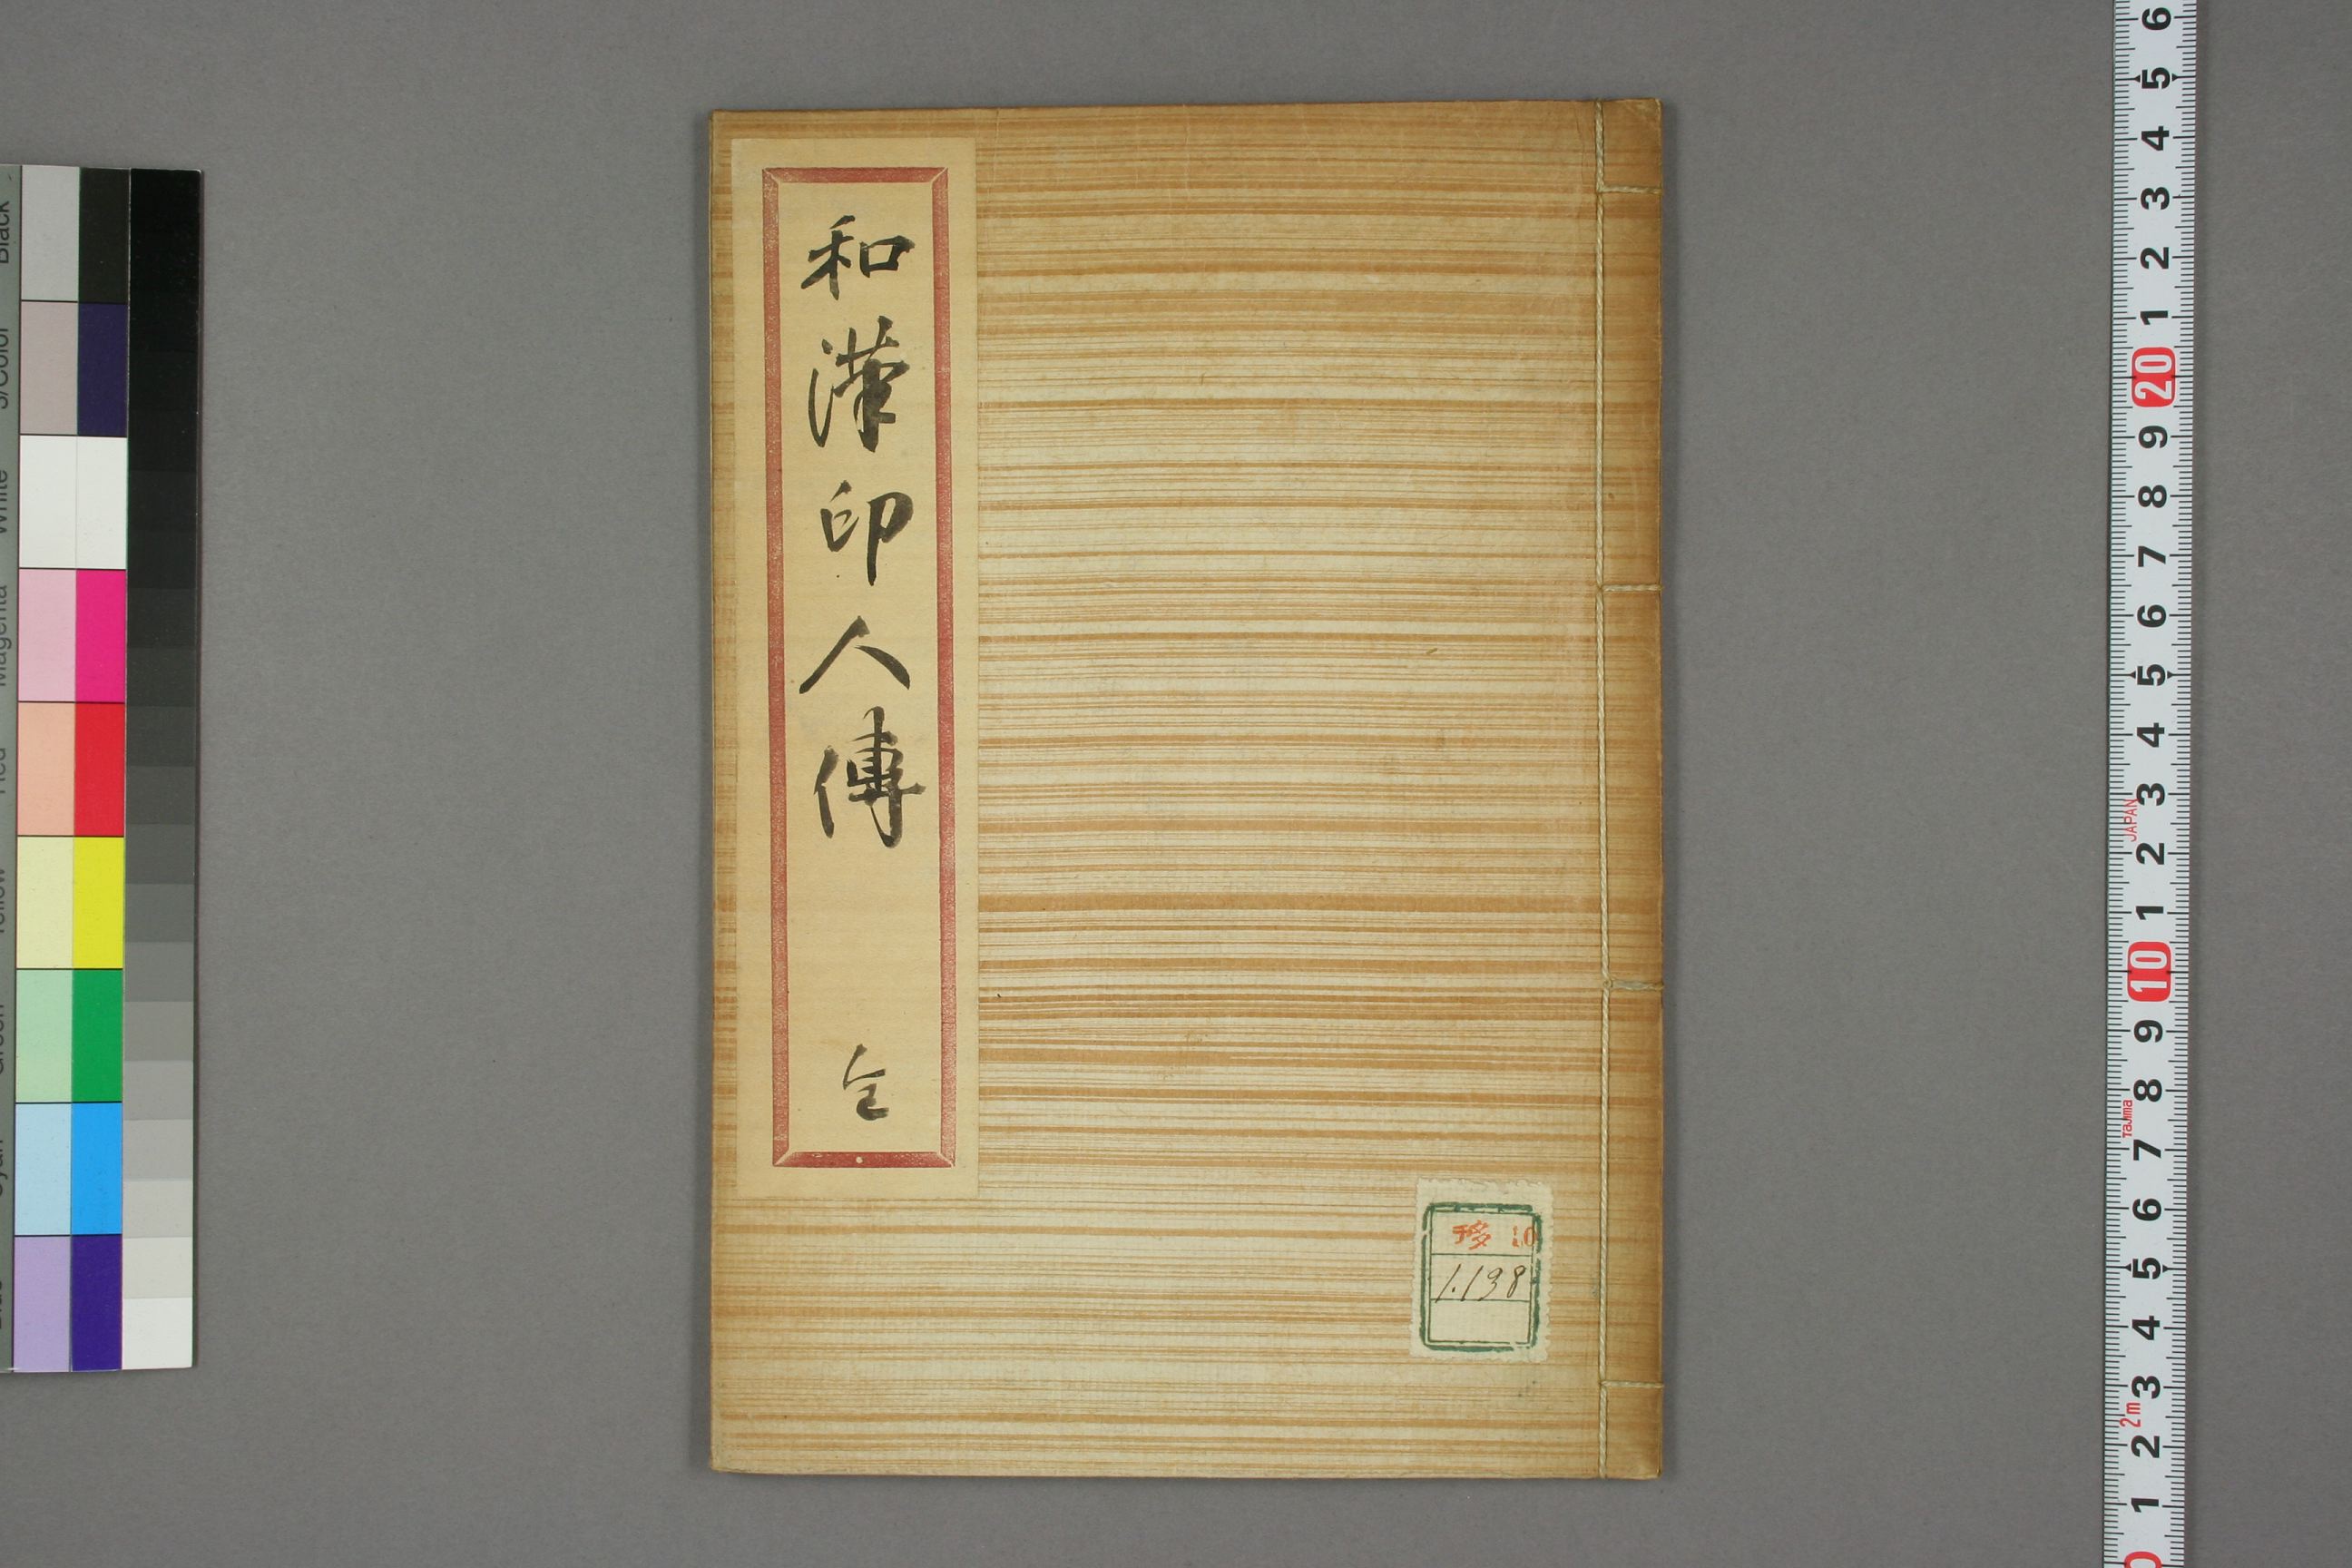 和漢印人傳
全
10
1.138
6
5
4
3
2
1
20
9
8
7
6
5
4
3
JAPAN
2
1
10
9
8
Tajima
7
6
5
4
3
2m
2
1
Black
3/Color
White
Magenta
Red
Yellow
Green
Cyan